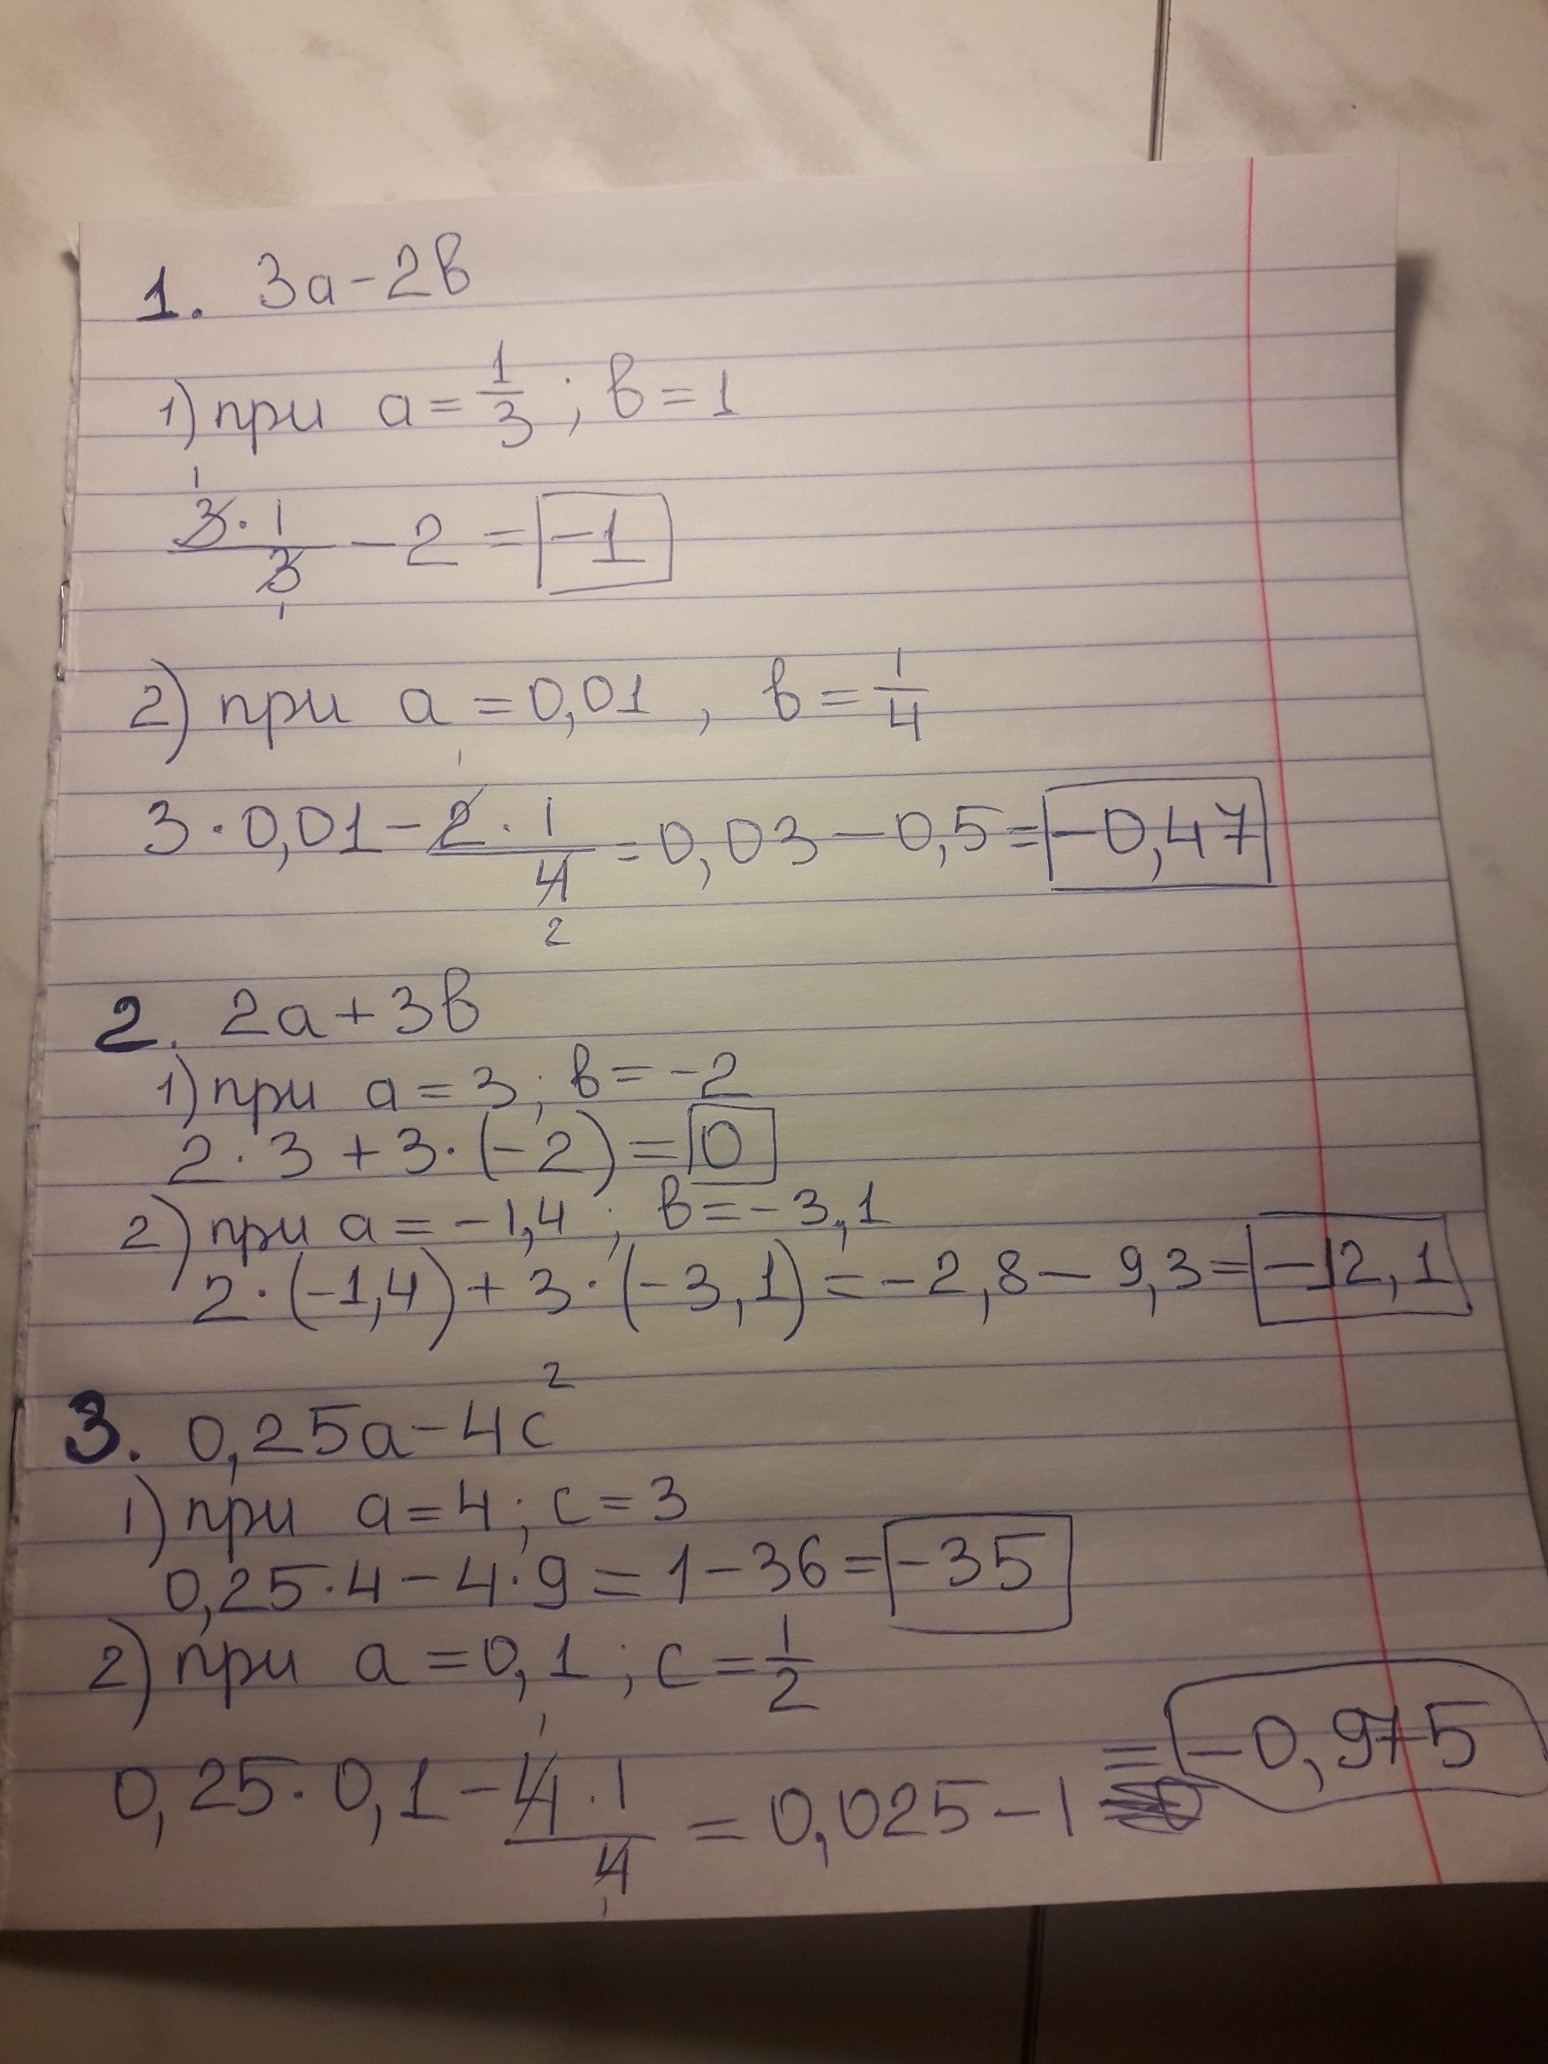 1. 3a-2в
1) при a = 1/3 ; в = 1
3·1/3 - 2 = -1
2) при a = 0,01 , в = 1/4
3·0,01 - 2·1/4 = 0,03 - 0,5 = -0,47
2. 2a+3в
1) при a = 3; в = -2
2·3 + 3·(-2) = 0
2) при a = -1,4 ; в = -3,1
2·(-1,4) + 3·(-3,1) = -2,8 - 9,3 = -12,1
3. 0,25a - 4c²
1) при a = 4; c = 3
0,25·4 - 4·9 = 1 - 36 = -35
2) при a = 0,1 ; c = 1/2
0,25·0,1 - 4·1/4 = 0,025 - 1 = -0,975